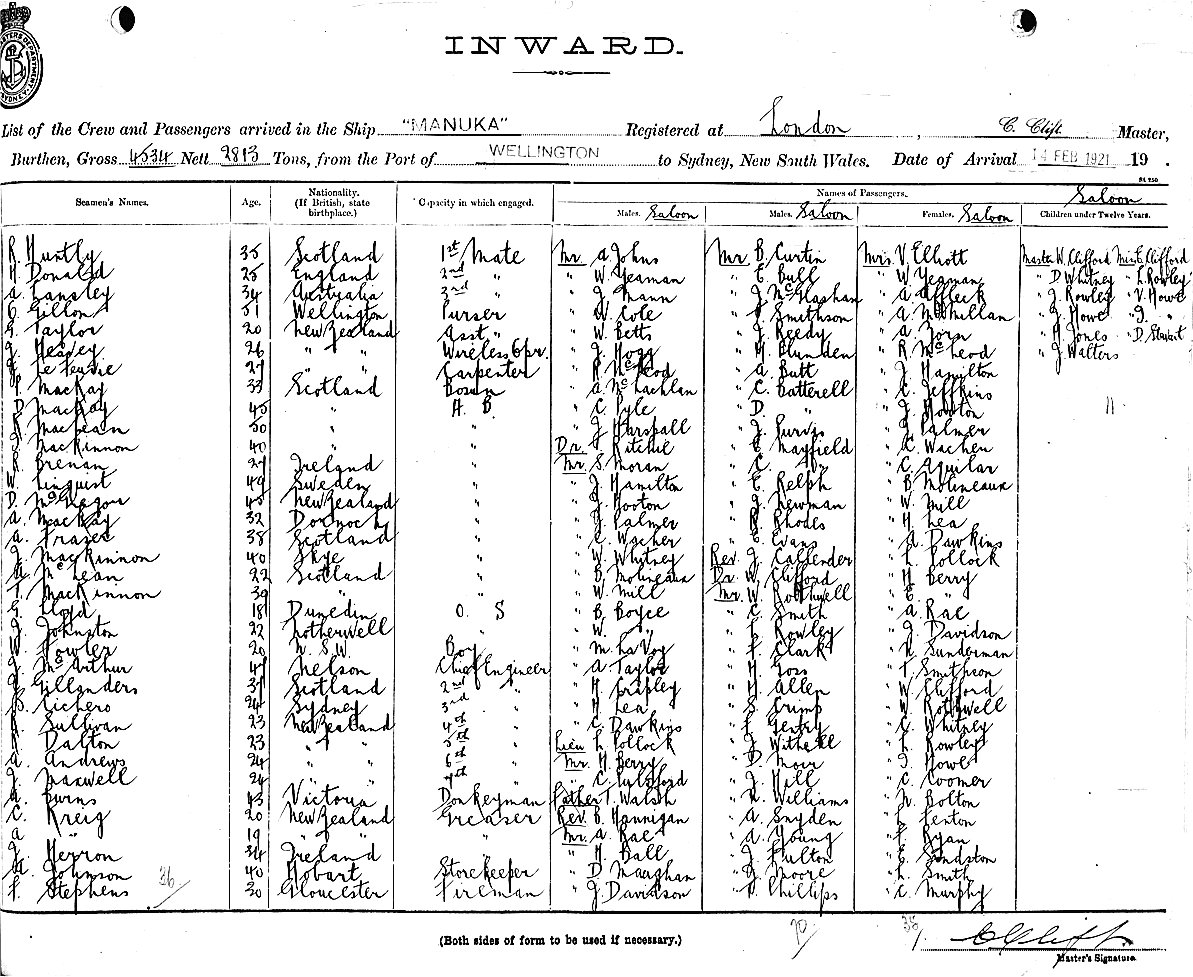 INWARD.
List of the Crew and Passengers arrived in the Ship "MANUKA" Registered at London, C. Clift Master,
Burthen, Gross 4534 Nett 2813 Tons, from the Port of WELLINGTON to Sydney, New South Wales. Date of Arrival 14 FEB 1921 19 .
Seamen's Names. Age. Nationality. (If British, state birthplace.) Capacity in which engaged. Names of Passengers. Saloon
Males. Saloon Males. Saloon Females. Saloon Children under Twelve Years.
R. Huntly 35 Scotland 1st Mate Mr. A. Johns Mr. B. Curtin Mrs. V. Elliott Master W. Clifford Miss E. Clifford
H. Donald 25 England 2nd " " W. Yeaman " E. Bull " W. Yeaman " D. Whitney " L. Rowley
A. Lansley 34 Australia 3rd " " J. Mann " J. McGlashan " A. Affleck " J. Rowley " V. Howe
C. Gillon 51 Wellington Purser " W. Cole " F. Smithson " A. McMillan " J. Howe " J. "
G. Taylor 20 New Zealand Asst " " W. Betts " J. Reedy " A. Zorn " H. Jones " D. Stewart
J. Heavey 26 " " Wireless Opr. " J. Hogg " H. Blunden " R. McLeod " J. Walters
27 " " Carpenter " R. McLeod " A. Butt " J. Hamilton
P. MacKay 33 Scotland Bosun " A. McLachlan " C. Batterell " E. Jeffkins
D. MacKay 45 " A. B. " C. Pyle " D. " " J. Hooton 11
R. MacBean 50 " " " J. Marshall " J. Purvis " J. Palmer
J. MacKinnon 40 " " Dr. Ritchie " E. Mayfield " C. Wacher
R. Brenan 27 Ireland " Mr. S. Moran " C. " " C. Aguilar
W. Linquist 49 Sweden " " J. Hamilton " E. Relph " B. Molineaux
D. McGregor 45 New Zealand " " J. Hooton " J. Newman " W. Mill
A. MacKay 32 Dornoch " " J. Palmer " R. Rhodes " H. Lea
A. Fraser 38 Scotland " " C. Wacher " C. Evans " A. Dawkins
J. MacKinnon 40 Skye " " W. Whitney Rev. J. Callender " L. Pollock
McLean 22 Scotland " " B. Molineaux Dr. W. Clifford " H. Berry
T. MacKinnon 39 " " " W. Mill Mr. W. Rothwell " E. "
G. Lloyd 18 Dunedin O. S " B. Boyce " C. Smith " A. Rae
J. Johnston 22 Rotherwell " " W. " " Rowley " J. Davidson
W. Fowler 20 N. S. W. Boy " M. LaVoy " F. Clark " N. Sunderman
J. McArthur 47 Nelson Chief Engineer " A. Taylor " H. Goss " T. Smithson
J. Gillanders 37 Scotland 2nd " " H. " H. Allen " W. Clifford
B. Cichero 24 Sydney 3rd " " H. Lea " S. Crump " W. Rothwell
R. Sullivan 23 New Zealand 4th " " C. Dawkins " F. Gentry " C. Whitney
R. Dalton 23 " " 5th " Lieu L. Pollock " J. Withell " L. Rowley
A. Andrews 24 " " 6th " Mr. H. Berry " D. Moir " J. Howe
J. Maxwell 24 " " 7th " " C. Pulsford " J. Hill " C. Coomer
A. Burns 43 Victoria Donkeyman Father T. Walsh " N. Williams " N. Bolton
C. Kreig 20 New Zealand Greaser Rev. B. Hannigan " A. Snyden " L. Fenton
A. " 19 " " " Mr. A. Rae " A. Young " F. Ryan
J. Herron 34 Ireland " " H. Ball " J. Fulton " E. Sandston
A. Johnson 40 Hobart Storekeeper " D. Maughan " J. Moore " L. Smith
F. Stephens 36 30 Gloucester Fireman " J. Davidson " P. Phillips " C. Murphy
(Both sides of form to be used if necessary.) 70 38 C Clift
Master's Signature.